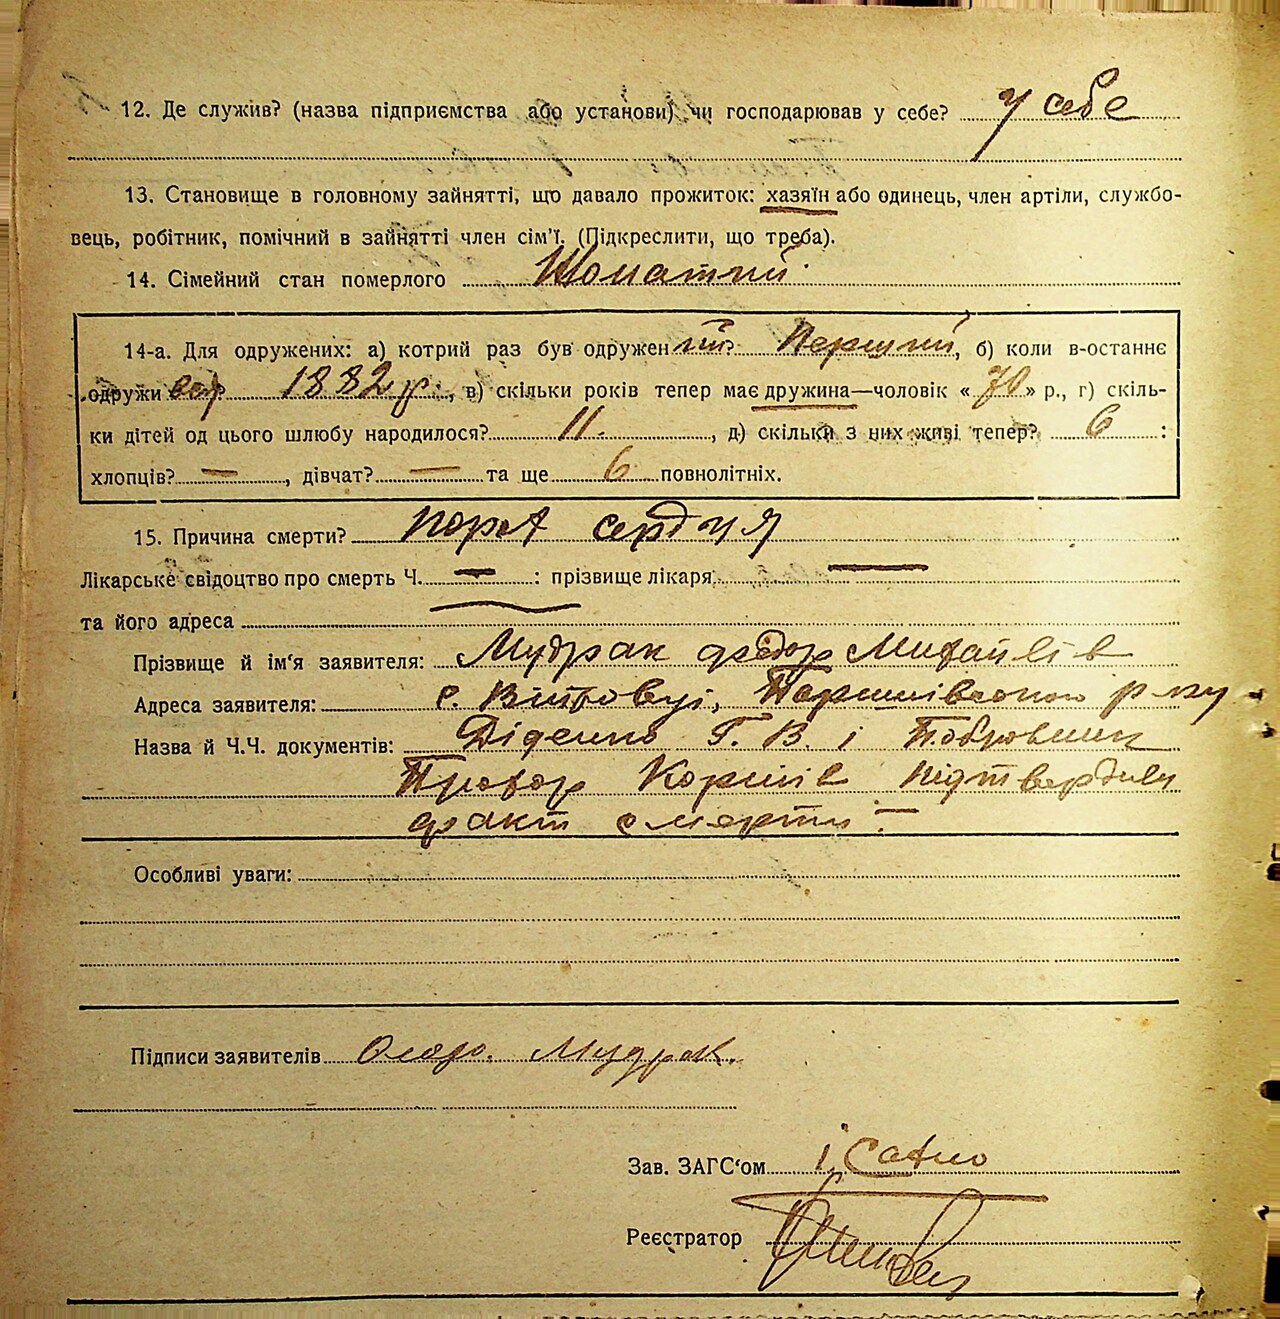 12. Де служив? (назва підприємства або установи) чи господарював у себе? у себе
13. Становище в головному зайнятті, що давало прожиток: хазяїн або одинець, член артіли, службо-
вець, робітник, помічний в зайнятті член сім'ї. (Підкреслити, що треба).
14. Сімейний стан померлого Жонатий
14-а. Для одружених: а) котрий раз був одружен ий? Перший, б) коли в-останнє
одружи вся 1882 р., в) скільки років тепер має дружина—чоловік « 70 » р., г) скіль-
ки дітей од цього шлюбу народилося? 11. , д) скільки з них живі тепер? 6 :
хлопців? — , дівчат? — та ще 6 повнолітніх.
15. Причина смерти? порок сердця
Лікарське свідоцтво про смерть Ч. — : прізвище лікаря —
та його адреса —
Прізвище й ім'я заявителя: Мудрак Федор Михайлів
Адреса заявителя: с.
Назва й Ч.Ч. документів: Діденко Г. В. і
Прохор Корнів підтвердили
факт смерти —
Особливі уваги:
Підписи заявителів Мудрак.
Зав. ЗАГС'ом
Реєстратор